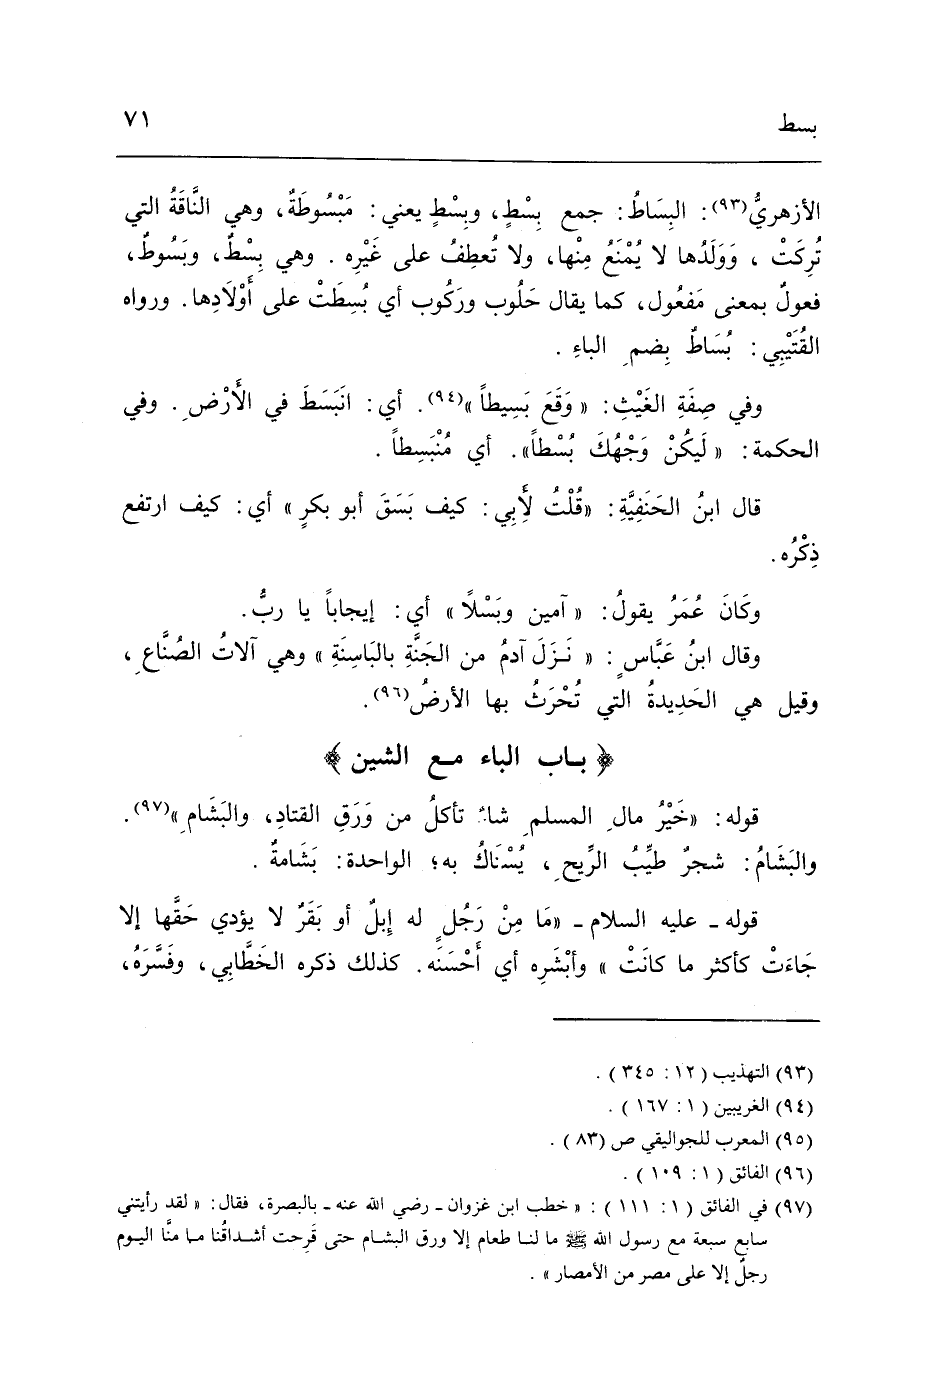 بسط ٧١
الأزهريُّ(٩٣): البِسَاطُ: جمع بِسْطٍ، وبِسْطٍ يعني: مَبْسُوطَةٌ، وهي النَّاقَةُ التي
تُرِكَتْ ، وَوَلَدُها لا يُمْنَعُ مِنْها، ولا تُعطِفُ على غَيْرِه . وهي بِسْطٌ، وبَسُوطٌ،
فعولٌ بمعنى مَفعُول، كما يقال حَلُوب ورَكُوب أي بُسِطَتْ على أَوْلَادِها. ورواه
القُتَيْبِي: بُسَاطٌ بِضمِ الباءِ .
وفي صِفَةِ الغَيْثِ: « وَقَعَ بَسِيطاً »(٩٤). أي: انَبَسَطَ في الأَرْضِ. وفي
الحكمة: « لَيكُنْ وَجْهُكَ بُسْطاً». أي مُنْبَسِطاً .
قال ابنُ الحَنَفِيَّةِ: «قُلْتُ لأَِبِي: كيف بَسَقَ أبو بكرٍ » أي: كيف ارتفع
ذِكْرُه.
وكَانَ عُمَرُ يقولُ: « آمين وبَسْلًا » أي: إيجاباً يا ربُّ.
وقال ابنُ عَبَّاسٍ: « نَـزَلَ آدمُ من الجَنَّةِ بالبَاسِنَةِ » وهي آلاتُ الصُنَّاعِ،
وقيل هي الحَدِيدةُ التي تُحْرَثُ بها الأرضُ(٩٦).
﴿ بـاب الباء مـع الشين ﴾
قوله: «خَيْرُ مالِ المسلمِ شاءٌ تأكلُ من وَرَقِ القتادِ، والبَشَامِ»(٩٧).
والبَشَامُ: شجرٌ طيِّبُ الرِّيحِ، يُسْتاكُ به؛ الواحدة: بَشَامةٌ .
قوله ـ عليه السلام ـ «مَا مِنْ رَجُلٍ له إبِلٌ أو بَقَرٌ لا يؤدي حَقَّها إلا
جَاءَتْ كأكثر ما كانَتْ » وأبْشَرِه أي أَحْسَنَه. كذلك ذكره الخَطَّابي، وفَسَّرَهُ،
(٩٣) التهذيب ( ١٢ : ٣٤٥ ) .
(٩٤) الغريبين ( ١ : ١٦٧ ) .
(٩٥) المعرب للجواليقي ص (٨٣ ) .
(٩٦) الفائق ( ١ : ١٠٩ ) .
(٩٧) في الفائق ( ١ : ١١١ ) : « خطب ابن غزوان ـ رضي الله عنه ـ بالبصرة، فقال: « لقد رأيتني
سابع سبعة مع رسول الله ﷺ ما لنـا طعام إلا ورق البشـام حتى قَرِحت أشـداقُنا مـا منَّا اليـوم
رجلٌ إلا على مصر من الأمصار » .